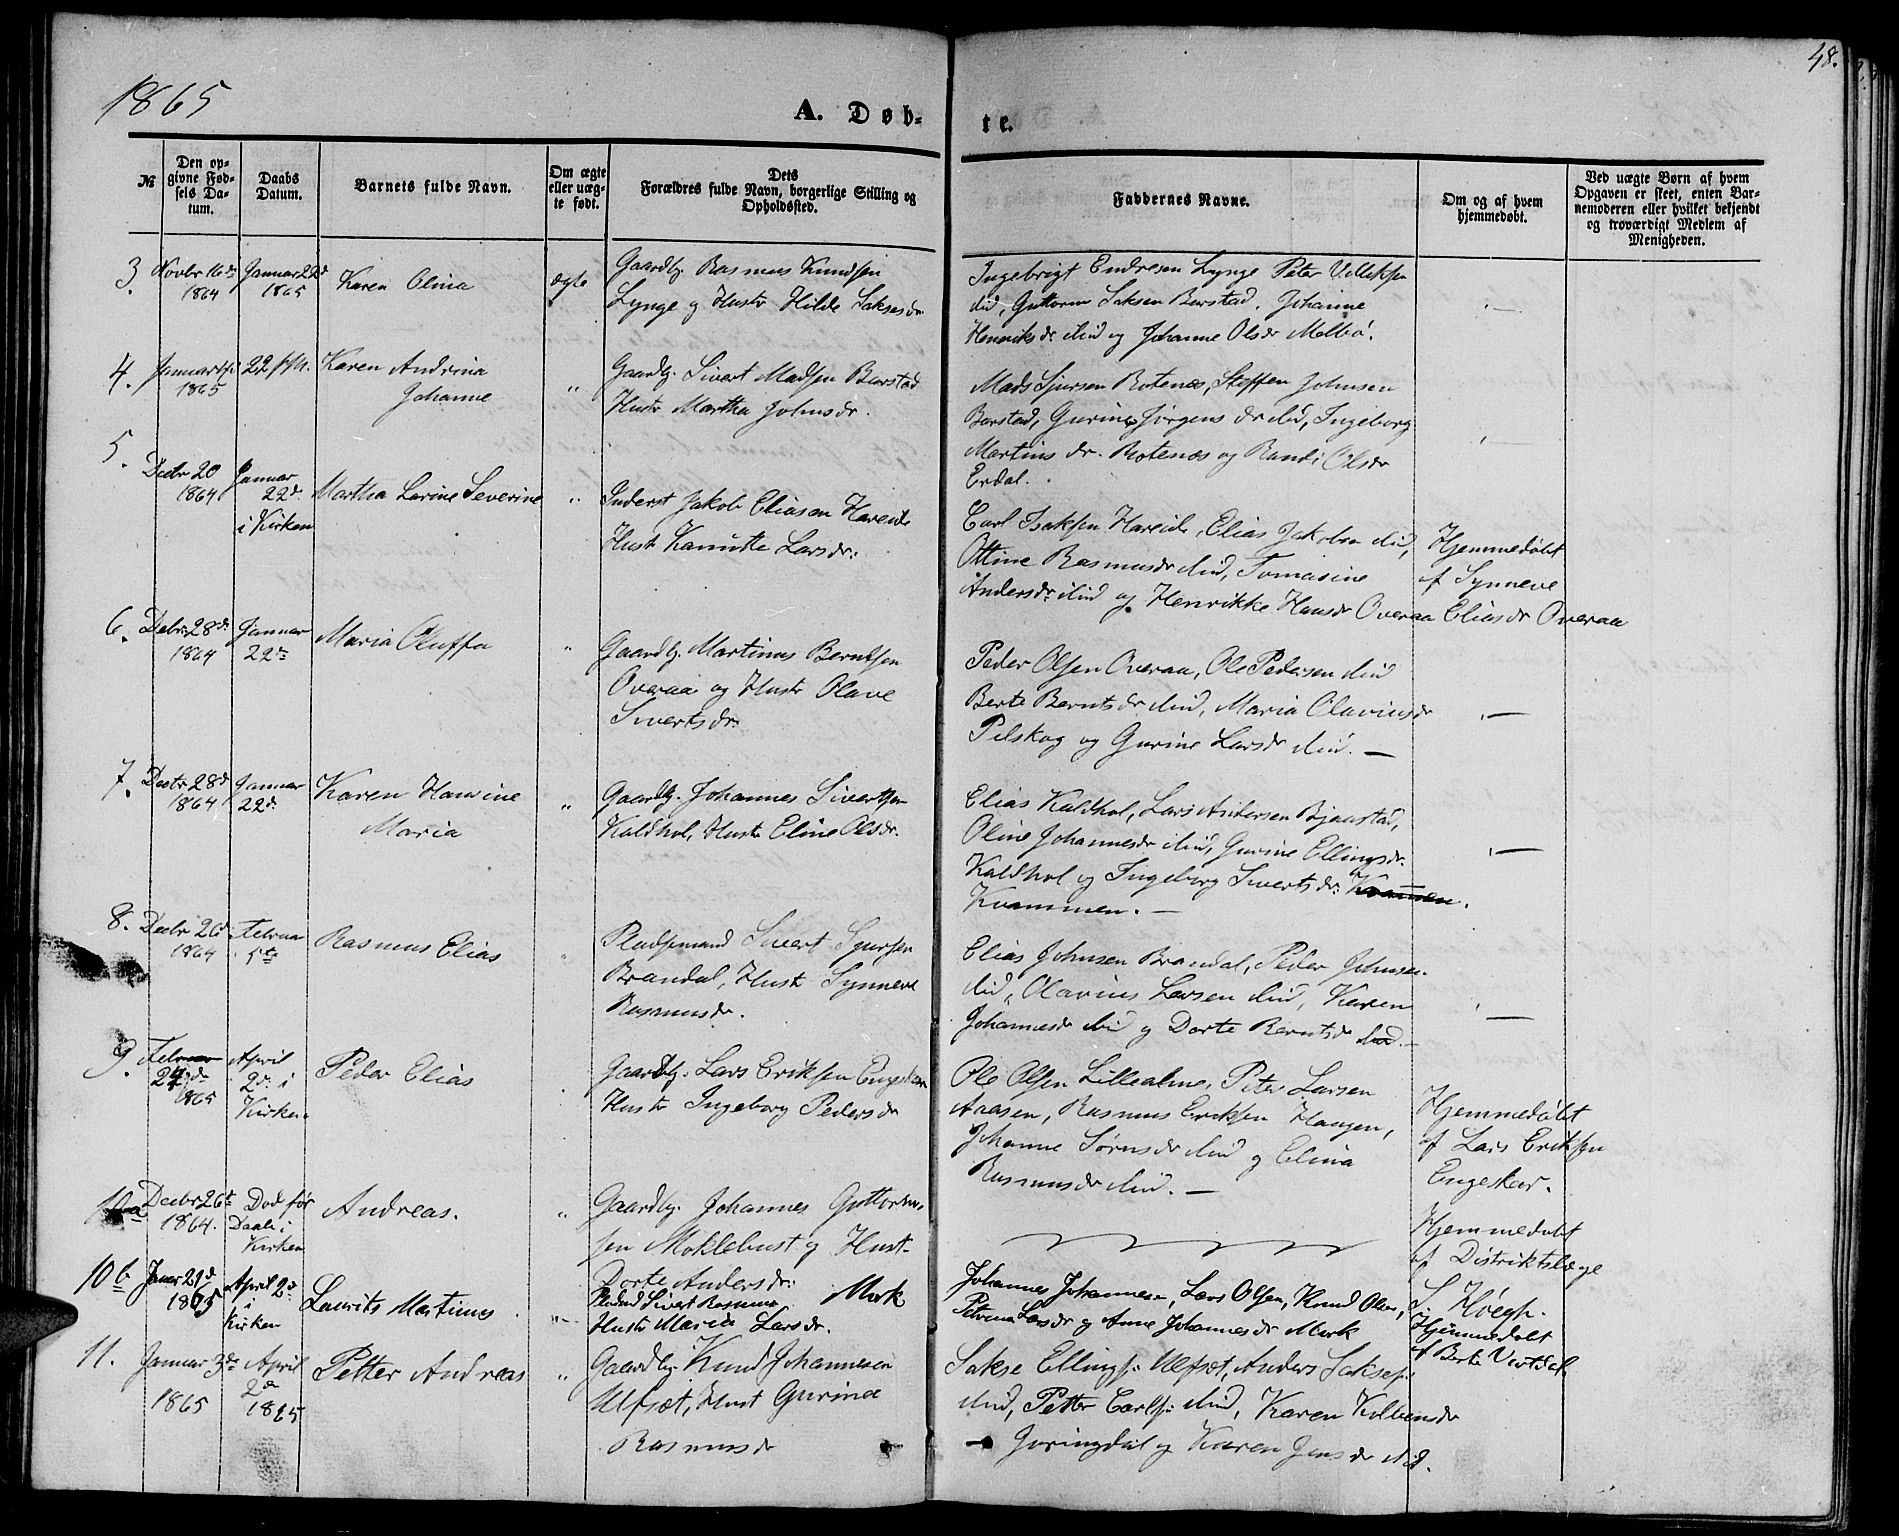 1865
48.
A. Døb-
te.
№
Den op-
givne Fød-
sels Da-
tum.
Daabs
Datum.
Barnets fulde Navn.
Om ægte
eller uæg-
te født.
Dets
Forældres fulde Navn, borgerlige Stilling og
Opholdssted.
Faddernes Navne.
Om og af hvem
hjemmedøbt.
Ved uægte Børn af hvem
Opgaven er skeet, enten Bar-
nemoderen eller hvilket bekjendt
og troværdigt Medlem af
Menigheden.
3. Novbr 16de 1864
Januar 22d 1865
Karen Olina
ægte
Gaardbr. Rasmus Knudsen
Lynge og Hustr Hilde Saksesdr
Ingebrigt Endresen Lynge Peter
ibid, Guttorm Saksen Barstad, Johanne
Henriksdr ibid og Johanne Olsdr Melbø.
4. Januar 1865
22
Karen Andrina
Johanne
"
Gaardbr. Sivert Madsen Barstad
Hustr Martha Johnsdr.
Mads Sjursen Rotenes, Steffen Johnsen
Barstad, Gurine Jørgensdr ibid, Ingeborg
Martinsdr. Rotenes og Randi Olsdr
Erdal.
5.
Decbr 20 1864
Januar
22d.
i Kirken
Martha Larine Severine
"
Inderst Jakob Eliasen Hareide
Hustr Kanutte Larsdr.
Carl Isaksen Hareide, Elias Jakobsen ibid,
Ottine Rasmusdr ibid, Tomasine
Andersdr ibid og Henrikke Hansdr Overaa
Hjemmedøbt
af Synneve
Eliasdr Overaa
6. Decbr 28de 1864
Januar
22de
Maria Oluffa
"
Gaardbr. Martinus Berntsen
Overaa og Hustr Olave
Sivertsdr.
Peder Olsen Overaa, Ole Pedersen ibid
Berte Berntsdr ibid, Maria Olavinsdr
Pilskog og Gurine Larsdr ibid. —
7. Decbr 28d 1864
Januar
22d.
Karen Hansine
Maria
"
Gaardbr. Johannes Sivertsen
Kaldhol, Hustr Eline Olsdr.
Elias Kaldhol, Lars Andersen Bjaastad,
Oline Johannesdr ibid, Gurine Ellingsdr.
Kaldhol og Ingeborg Sivertsdr. Kvammen.
Kvammen. —
8. Decbr 26d 1864
Februar
5te
Rasmus Elias
"
Pladsmand Sivert Sjursen
Brandal, Hustr Synneve
Rasmusdr.
Elias Johnsen Brandal, Peder Johnsen
ibid, Olavius Larsen ibid, Karen
Johannesdr ibid og Dorte Berntsdr ibid. —
9. Februar
24de 1865
April
2d. i
Kirken
Peder Elias
Gaardbr. Lars Eriksen Engeskar
Hustr Ingeborg Pedersdr
Ole Olsen Lillealme, Peter Larsen
Aaasen, Rasmus Eriksen Haugen,
Johanne Sørnsdr ibid og Elina
Rasmusdr ibid. —
Hjemmedøbt
af Lars Eriksen
Engeskar.
10a Decbr 26t 1864.
Død før
Daab i
Kirken
Andreas.
"
Gaardbr. Johannes Guttorm-
sen Moklebust og Hust-
Dorte Andersdr.
Hjemmedøbt
af Distriktslæge
L. Höegh.
10b Januar 21d 1865
April 2d.
i
Kirken
Laurits Martinus
"
Pladsmd Sivert Rasmus. Mork
Hustr Maria Larsdr.
Johannes Johannesen, Lars Olsen, Knud Olsen,
Petrina Larsdr og Anne Johannesdr Mork
Hjemmedøbt
af Berte Vartdal.
11. Januar 3de 1865
April
2d
1865
Petter Andreas
"
Gaardbr. Knud Johannesen
Ulfsæt, Hust Gurina
Rasmusdr
Sakse Ellings. Ulfsæt, Anders Saksesen
ibid, Petter Carls. ibid, Karen
Joringdal og Karen Jensdr ibid.